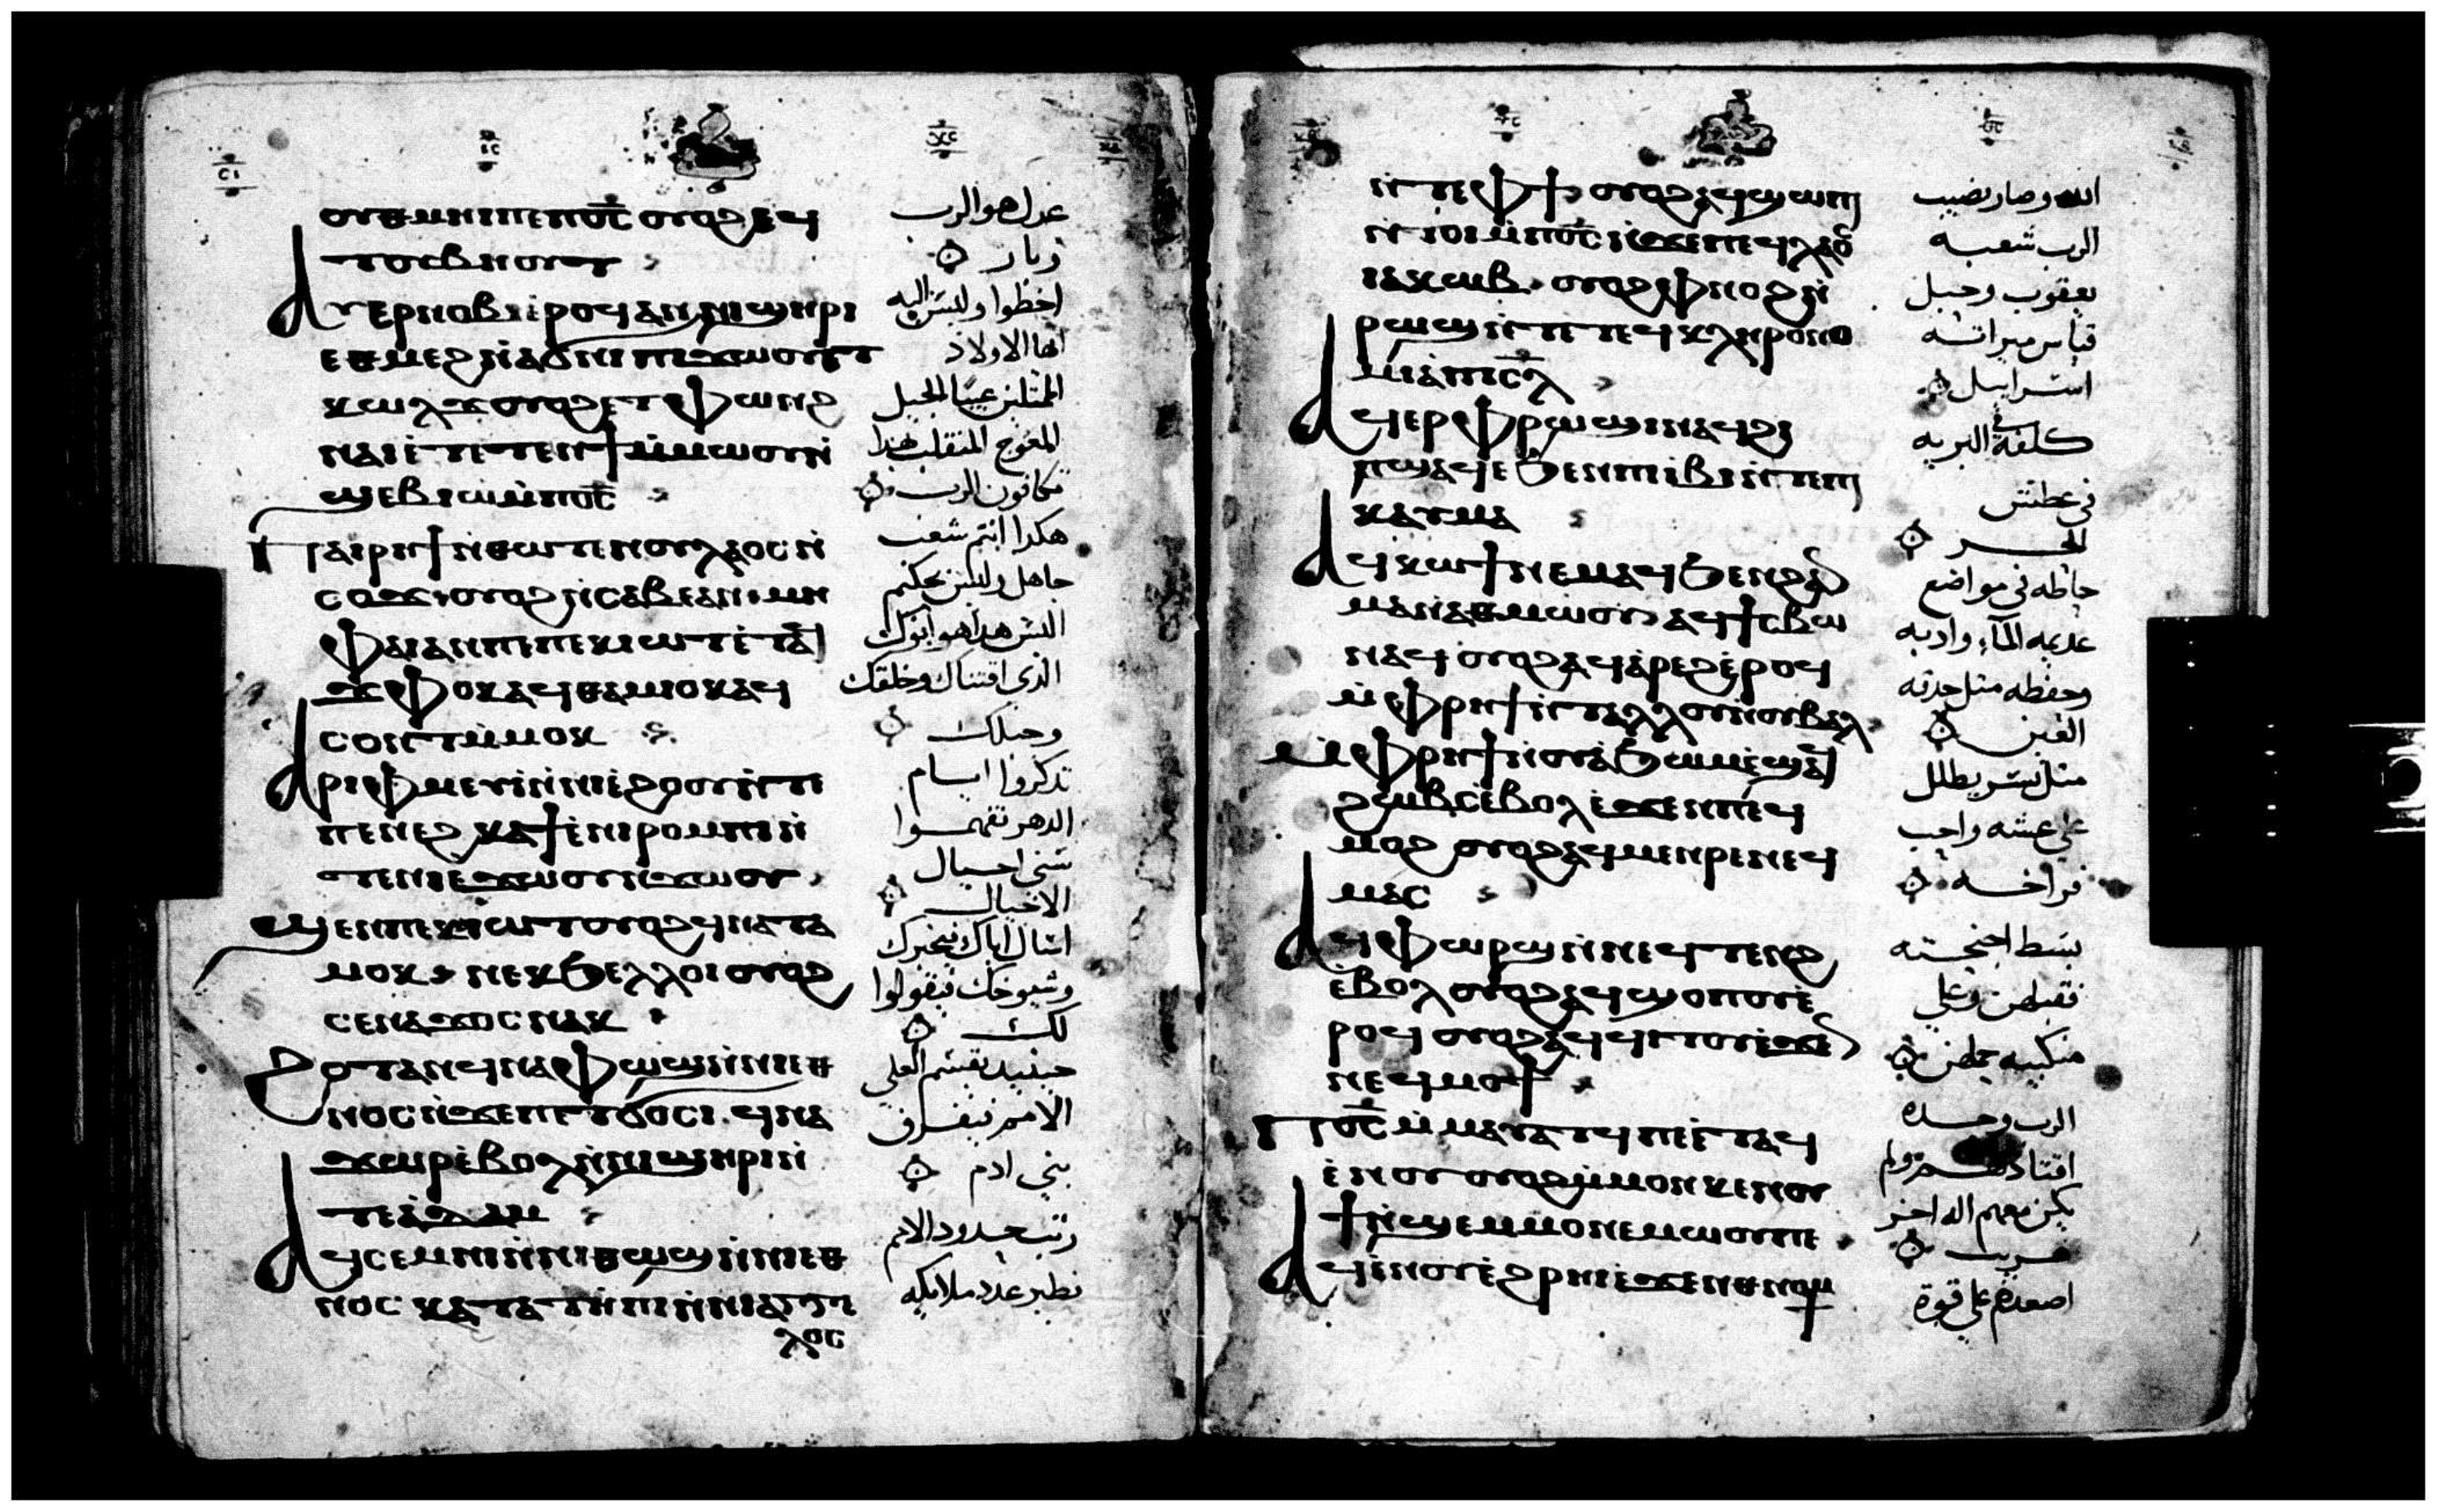 ⲟⲩⲑⲙⲏⲓ ⲡⲉ ⲡⲟ̅ⲥ̅ ⲟⲩⲟϩ ϥ̀
ⲧⲟⲩⲃⲏⲟⲩⲧ
ⲁⲩⲉⲣⲛⲟⲃⲓ ⲉ̀ⲣⲟϥ ⲁⲛ ⲛⲓϣⲏⲣⲓ
ⲉⲑⲙⲉϩ ⲛ̀ⲁϭⲛⲓ ⲡⲓϫⲱⲟⲩ ⲉⲧ
ⲕⲱⲗϫ ⲟⲩⲟϩ ⲉⲧⲫⲱⲛϩ
ⲛⲁⲓ ⲉ̀ⲧⲉⲧⲉⲛϯ ⲙ̀ⲙⲱⲟⲩ ⲛ̀
ϣⲉⲃⲓⲱ̀ ⲙ̀ⲡⲟ̅ⲥ̅
ⲡⲁⲓⲣⲏϯ ⲛ̀ⲑⲱⲧⲉⲛ ⲟⲩⲗⲁⲟⲥ ⲛ̀
ⲥⲟϫ ⲟⲩⲟϩ ⲛ̀ⲥⲁⲃⲉ ⲁⲛ ⲙⲏ
ⲫⲁⲓ ⲁⲛ ⲡⲉ ⲡⲉⲕⲓⲱⲧ ⲉ̀ⲧⲁϥ
ϫⲫⲟⲕ ⲁϥⲑⲁⲙⲓⲟⲕ ⲁϥ
ⲥⲟⲛⲧ ⲙ̀ⲙⲟⲕ
ⲁⲣⲓⲫⲙⲉⲩⲓ̀ ⲛ̀ⲛⲓⲉ̀ϩⲟⲟⲩ ⲛ̀ⲧⲉ
ⲡⲉⲛⲉϩ ⲕⲁϯ ⲉ̀ⲛⲓⲣⲟⲙⲡⲓ ⲛ̀
ⲧⲉ ⲛⲓϫⲱⲟⲩ ⲛ̀ϫⲱⲟⲩ
ϣⲉⲛ ⲡⲉⲕⲓⲱⲧ ⲟⲩⲟϩ ϥⲛⲁⲧⲁ
ⲙⲟⲕ ⲛⲉⲕϧⲉⲗⲗⲟⲓ ⲟⲩⲟϩ
ⲥⲉⲛⲁϫⲟⲥ ⲛⲁⲕ
ϩⲟⲧⲁⲛ ϥⲛⲁⲫⲱϣ ⲛ̀ⲛⲓⲉⲑ
ⲛⲟⲥ ⲛ̀ϫⲉ ⲡⲉⲧϭⲟⲥⲓ ϥⲛⲁ
ϫⲱⲣ ⲉ̀ⲃⲟⲗ ⲛ̀ⲛⲓϣⲏⲣⲓ ⲛ̀
ⲧⲉ ⲁ̀ⲇⲁⲙ
ⲁϥⲥⲉⲙⲛⲓ ⲛ̀ⲛⲓⲑⲱϣ ⲛ̀ⲛⲓⲉⲑ
ⲛⲟⲥ ⲕⲁⲧⲁ ⲧⲏ̀ⲡⲓ ⲛ̀ⲛⲓⲁⲅⲅⲉ
ⲗⲟⲥ
عدل هو الرب
وبار
اخطوا وليس اليه
ايها الاولاد
الممتلئين عيبا الجيل
المعوج المنقلب بهذا
تكافون الرب
هكذا انتم شعب
جاهل وليس بحكيم
اليس هذا هو ابوك
الذى اقتناك وخلقك
وجبلك
تذكروا ايام
الدهر تفهموا
سنى اجيال
الاجيال
اسال اباك فيخبرك
وشيوخك فيقولوا
لك
حينيد يقسم العلى
الامم فيفرق
بنى ادم
رتب حدود الامم
نظير عدد ملايكه
ⲛ̀ⲧⲉ ⲫϯ ⲟⲩⲟϩ ⲁϥϣⲱⲡⲓ
ⲛ̀ⲧⲟⲓ ⲙ̀ⲡⲟ̅ⲥ̅ ⲛ̀ϫⲉ ⲡⲉϥⲗⲁⲟⲥ
ⲓⲁⲕⲱⲃ ⲟⲩⲟϩ ⲫⲛⲟϩ ⲛ̀
ⲣⲱϣ ⲛ̀ⲧⲉ ⲧⲉϥⲕⲗⲏⲣⲟⲛⲟ
ⲙⲓⲁ ⲡⲓⲥ̅ⲗ̅
ⲁϥⲉⲣⲫⲣⲱϣⲓ ⲛⲁϥ ϩⲓ
ⲡϣⲁϥⲉ ϧⲉⲛ ⲡⲓⲃⲓ ⲛ̀ⲧⲉ ⲡⲓ
ⲕⲁⲩⲙⲁ
ⲁϥⲕⲱϯ ⲛⲉⲙⲁϥ ϧⲉⲛ ϩⲁⲛ
ⲙⲁⲛ̀ⲁⲑⲙⲱⲟⲩ ⲁϥϯⲥⲃⲱ
ⲛⲁϥ ⲟⲩⲟϩ ⲁϥⲁ̀ⲣⲉϩ ⲉ̀ⲣⲟϥ
ⲙ̀ⲫⲣⲏϯ ⲛ̀ⲧⲁⲗⲗⲟⲩ ⲛ̀ⲟⲩⲃⲁⲗ
ⲙ̀ⲫⲣⲏϯ ⲛ̀ⲟⲩⲁ̀ϧⲱⲙ ⲉ̀ϣⲁϥ
ϩⲱⲃⲥ ⲉ̀ⲃⲟⲗ ⲉ̀ϫⲉⲛ ⲡⲉϥ
ⲙⲟϩ ⲟⲩⲟϩ ⲁϥⲙⲉⲛⲣⲉ ⲛⲉϥ
ⲙⲁⲥ
ⲁϥⲫⲱⲣϣ ⲛ̀ⲛⲉϥⲧⲉⲛϩ
ⲉ̀ⲃⲟⲗ ⲟⲩⲟϩ ⲁϥϣⲟⲡⲟⲩ ⲉ̀
ⲣⲟϥ ⲟⲩⲟϩ ⲁϥϥⲓⲧⲟⲩ ⲉ̀ϫⲉⲛ
ⲛⲉϥⲙⲟϯ
ⲡⲟ̅ⲥ̅ ⲙ̀ⲙⲁⲩⲁⲧϥ ⲡⲉ ⲉ̀ⲧⲁϥ
ⲉⲛⲟⲩ ⲟⲩⲟϩ ⲙ̀ⲙⲟⲛ ⲕⲉⲛⲟⲩ
ϯ ⲛ̀ϣⲉⲙⲙⲟ ⲛⲉⲙⲱⲟⲩ ⲡⲉ
ⲁϥⲉ̀ⲛⲟⲩ ⲉ̀ϩⲣⲏⲓ ⲉ̀ϫⲉⲛ ⲑⲛⲟⲙϯ
الله وصار نصيب
الرب شعبه
يعقوب وحبل
قياس ميراثه
اسراييل
كلفه فى البريه
فى عطش
الحر
حاطه فى مواضع
عديمه الماء وادبه
وحفظه مثل حدقه
العين
مثل نسر يظلل
على عشه واحب
فراخه
بسط اجنحته
فقبلهن وعلى
منكبيه حملهن
الرب وحده
يكن معهم اله اخر
غريب
اصعدهم على قوة